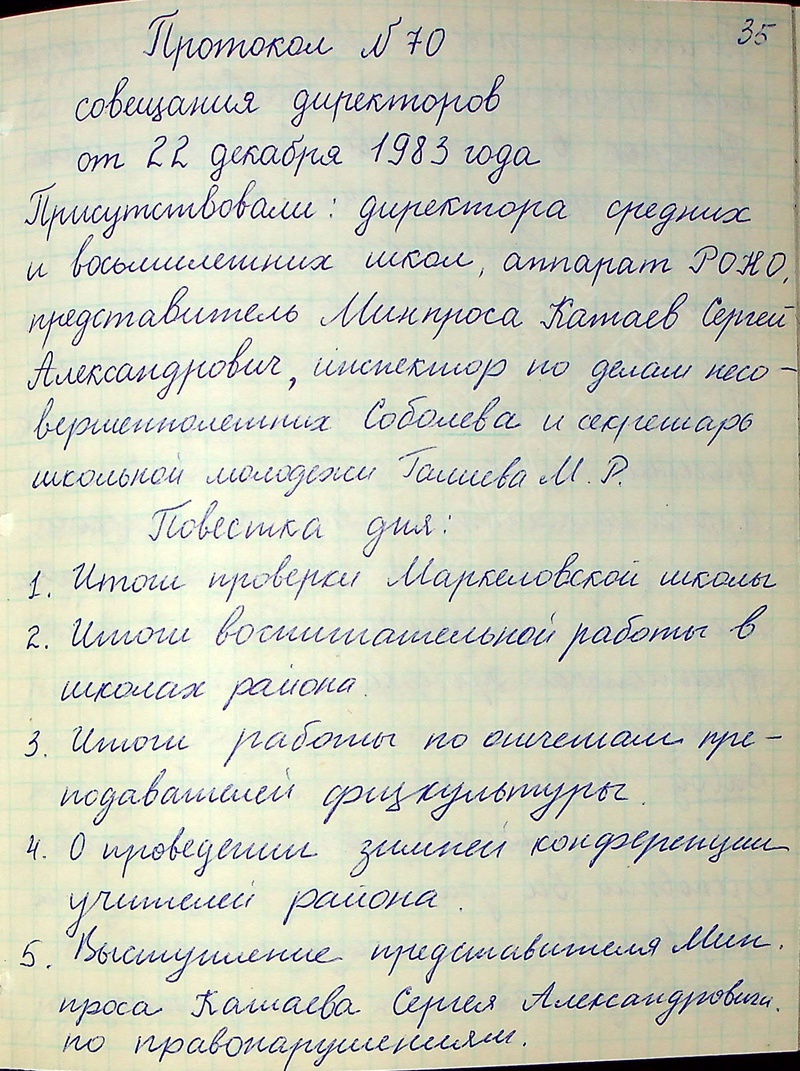 35
Протокол N 70
совещания директоров
от 22 декабря 1983 года
Присутствовали: директора средних
и восьмилетних школ, аппарат РОНО,
представитель Минпроса Катаев Сергей
Александрович, инспектор по делам несо-
вершеннолетних Соболева и секретарь
школьной молодежи Галиева М. Р.
Повестка дня:
1. Итоги проверки Маркеловской школы
2. Итоги воспитательной работы в
школах района.
3. Итоги работы по отчетам пре-
подавателей физкультуры.
4. О проведении зимней конференции
учителей района.
5. Выступление представителя Мин.
проса Катаева Сергея Александровича.
по правонарушениям.